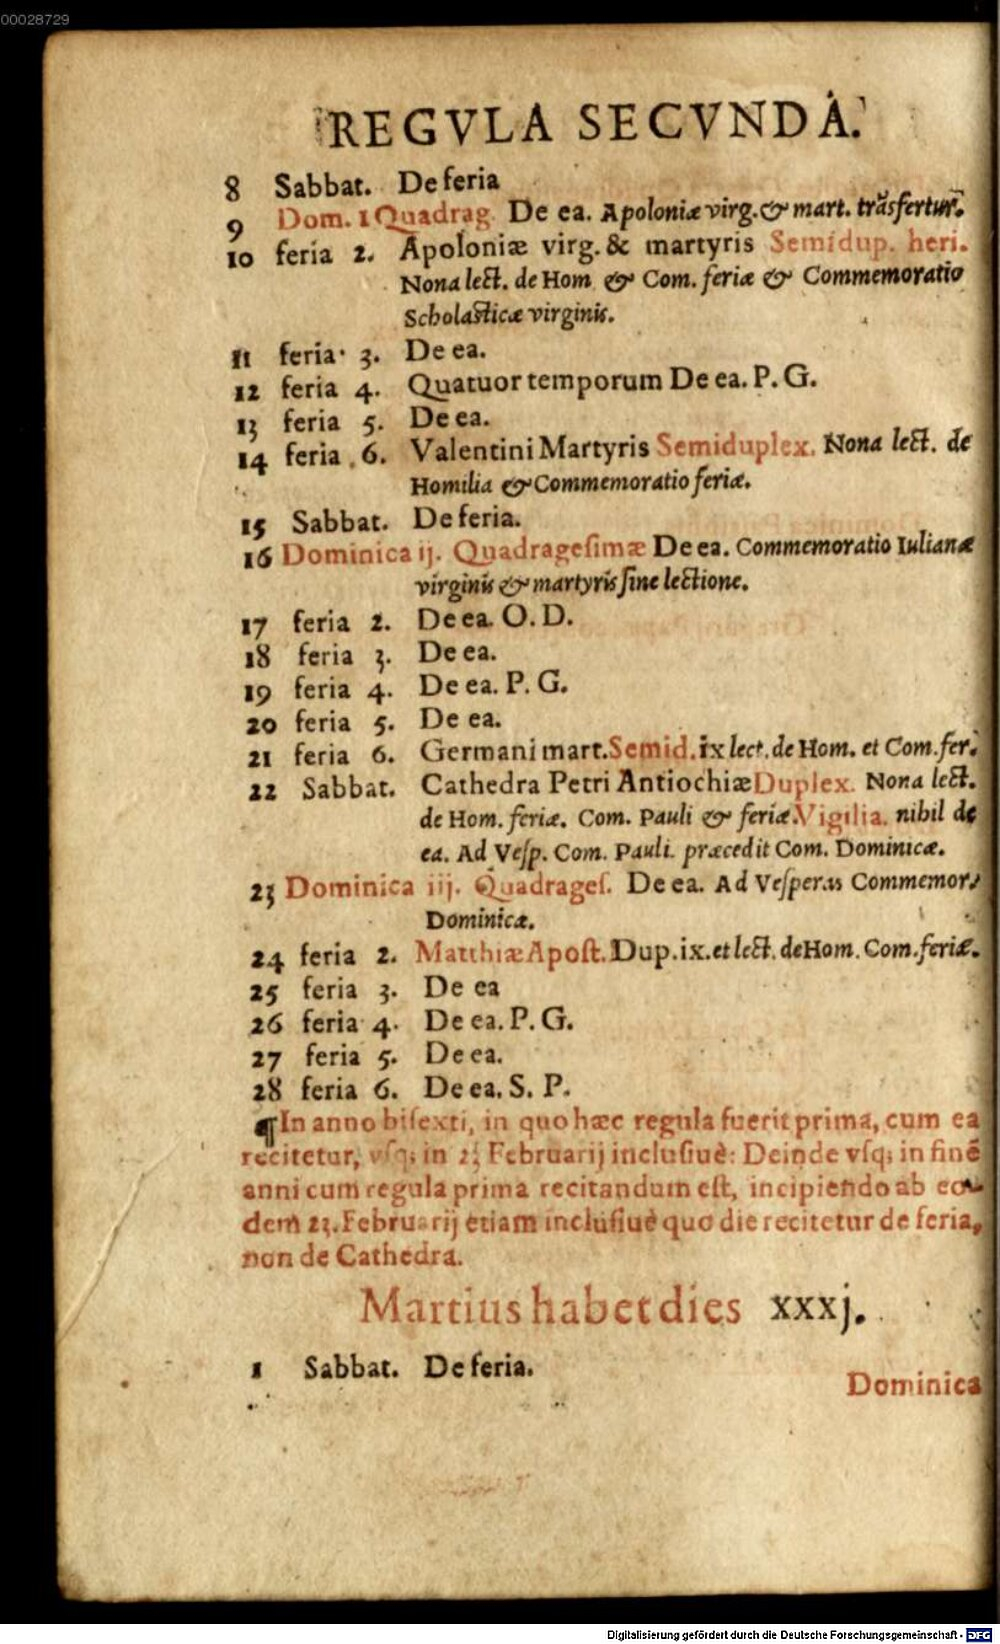 00028729
REGVLA SECVNDA.
8 Sabbat. De feria
9 Dom. 1 Quadrag. De ea. Apoloniæ virg. & mart. trãsfertur.
10 feria 2. Apoloniæ virg. & martyris Semidup. heri.
Nona lect. de Hom & Com. feriæ & Commemoratio
Scholasticæ virginis.
11 feria 3. De ea.
12 feria 4. Quatuor temporum De ea. P. G.
13 feria 5. De ea.
14 feria 6. Valentini Martyris Semiduplex. Nona lect. de
Homilia & Commemoratio feriæ.
15 Sabbat. De feria.
16 Dominica ij. Quadragesimæ De ea. Commemoratio Iulianæ
virginis & martyris ſine lectione.
17 feria 2. De ea. O. D.
18 feria 3. De ea.
19 feria 4. De ea. P. G.
20 feria 5. De ea.
21 feria 6. Germani mart. Semid. ix lect. de Hom. et Com. fer.
22 Sabbat. Cathedra Petri Antiochiæ Duplex. Nona lect.
de Hom. feriæ. Com. Pauli & feriæ. Vigilia. nihil de
ea. Ad Veſp. Com. Pauli. præcedit Com. Dominicæ.
23 Dominica iij. Quadrageſ. De ea. Ad Veſperas Commemor.
Dominicæ.
24 feria 2. Matthiæ Apoſt. Dup. ix. et lect. de Hom. Com. feriæ.
25 feria 3. De ea
26 feria 4. De ea. P. G.
27 feria 5. De ea.
28 feria 6. De ea. S. P.
¶ In anno biſexti, in quo hæc regula fuerit prima, cum ea
recitetur, vſq; in 23 Februarij incluſiuè: Deinde vſq; in finẽ
anni cum regula prima recitandum eſt, incipiendo ab eo-
dem 23. Februarij etiam incluſiuè quo die recitetur de feria,
non de Cathedra.
Martius habet dies xxxj.
1 Sabbat. De feria.
Dominica
Digitalisierung gefördert durch die Deutsche Forschungsgemeinschaft - DFG